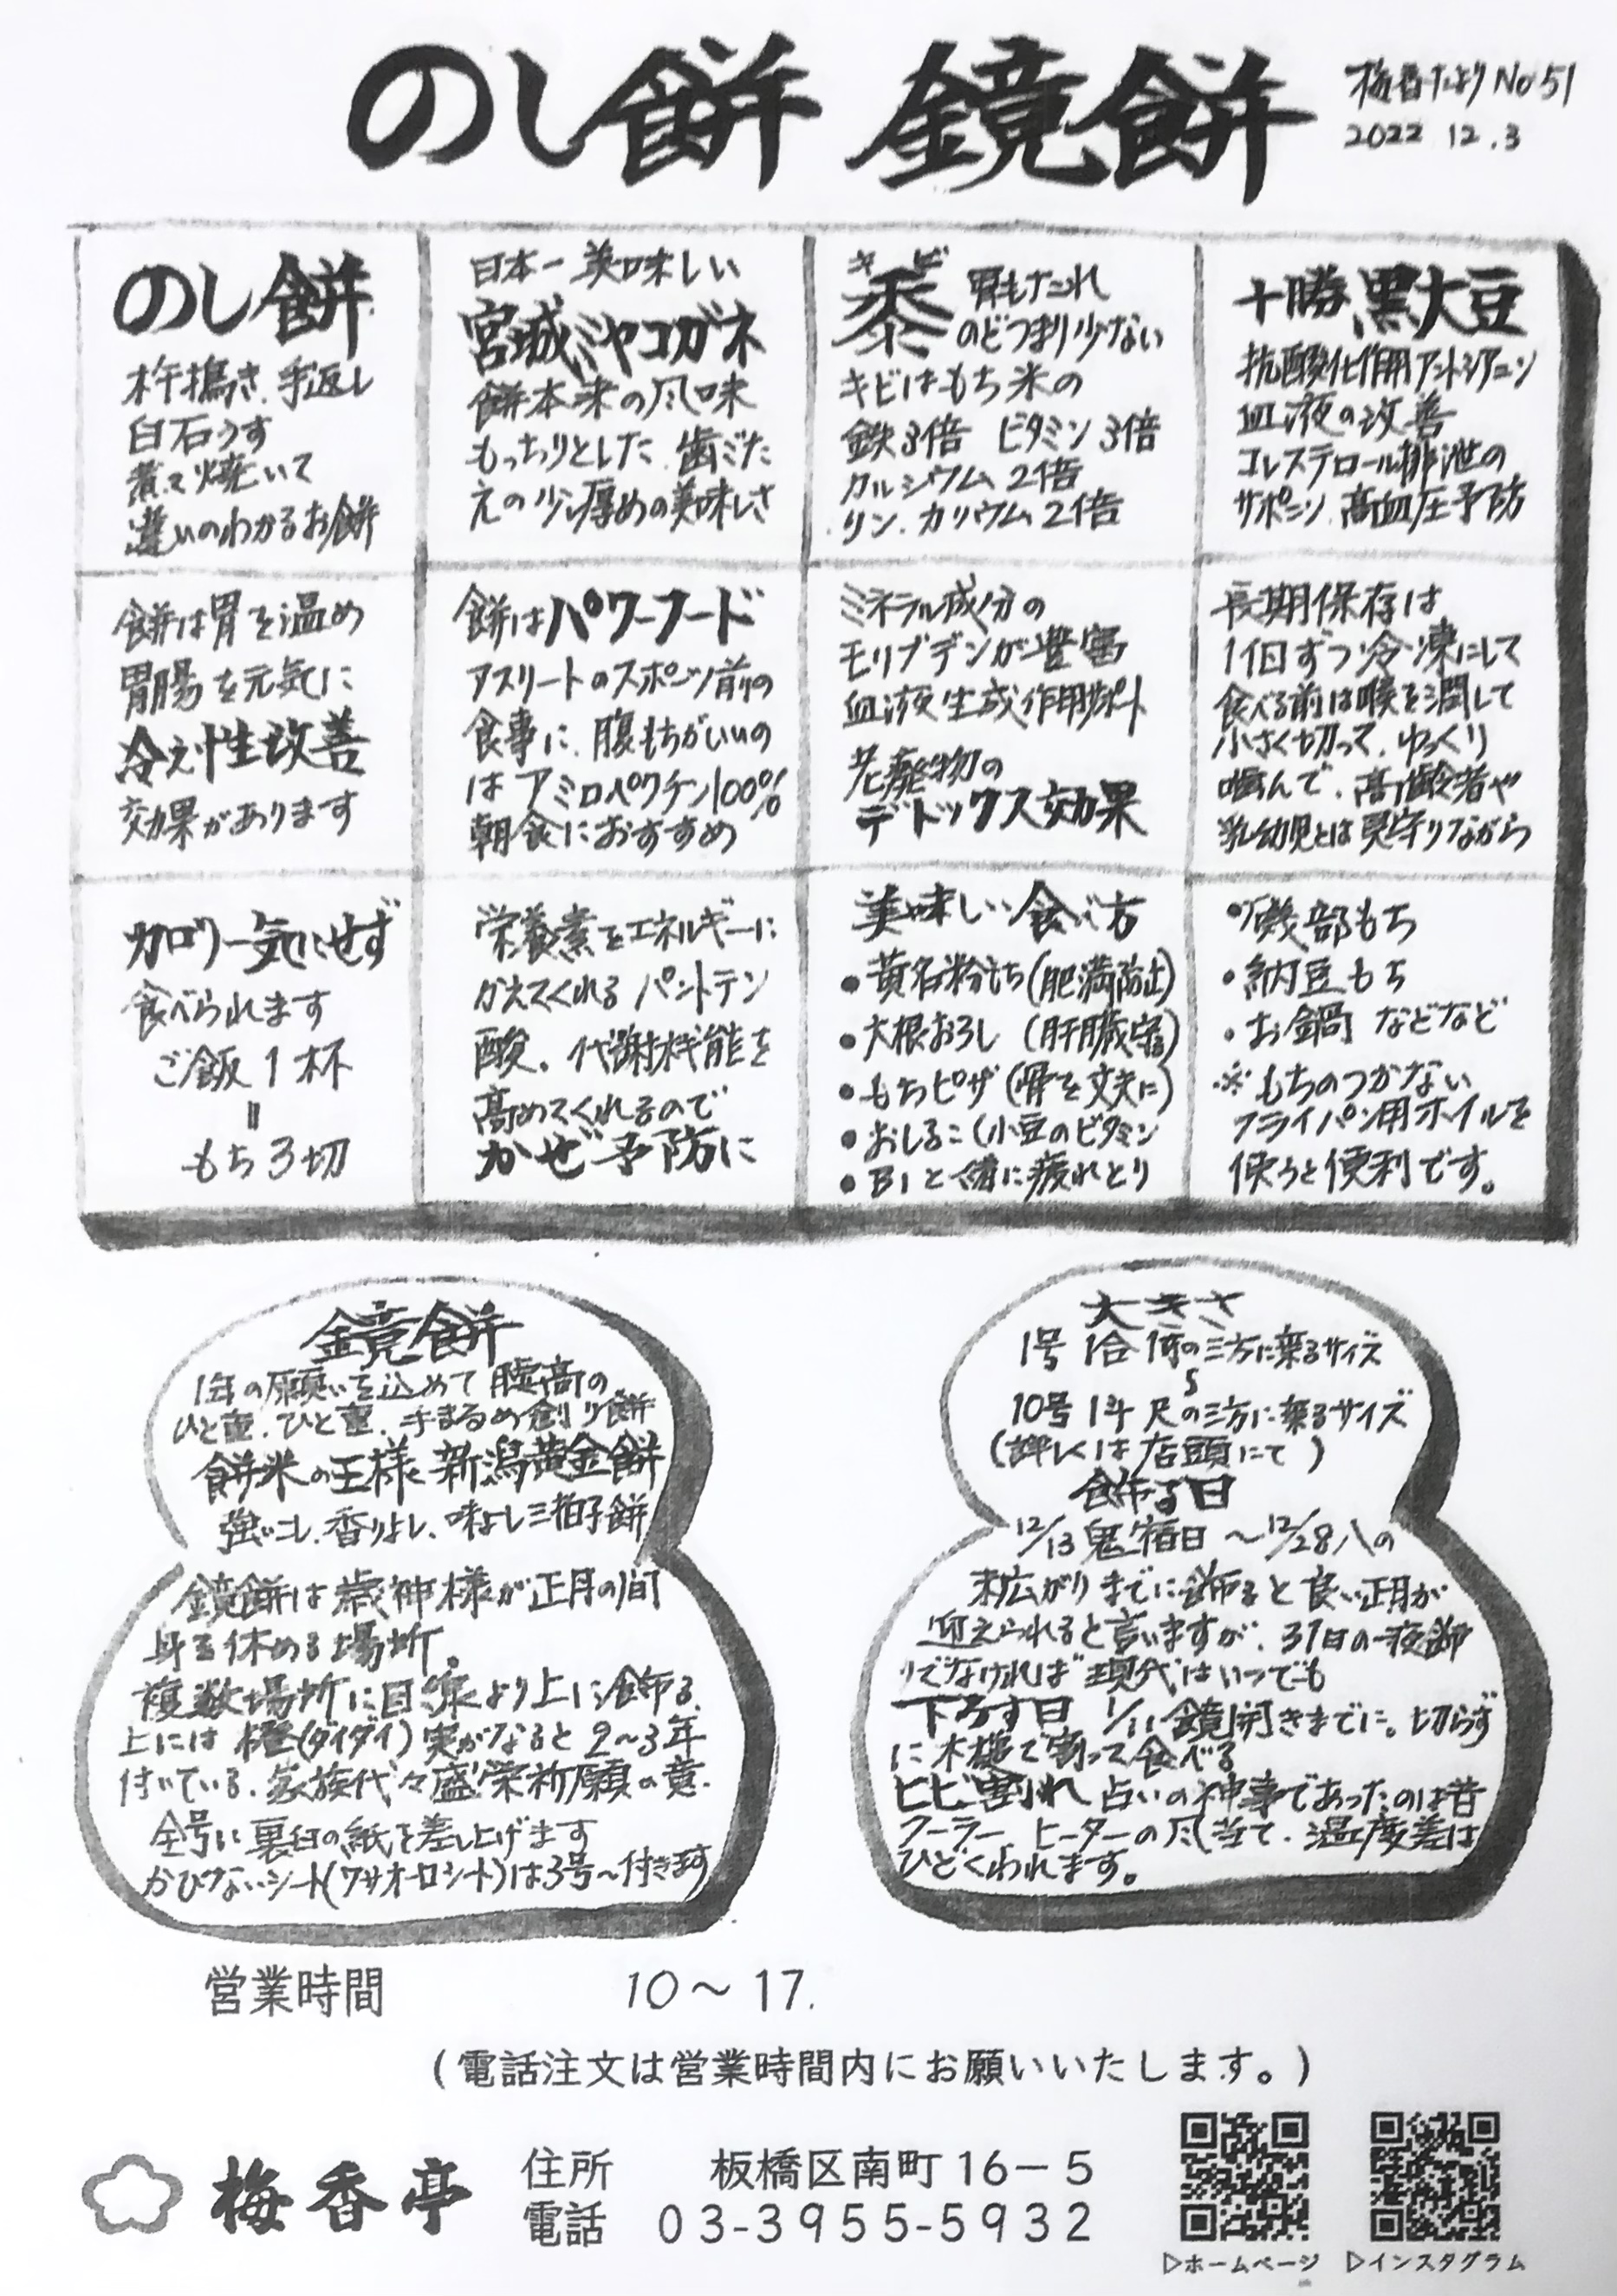 のし餅 鏡餅
梅香だより No 51
2022 12.3
のし餅
杵搗き、手返し
臼石うす
煮て焼いて
違いのわかるお餅
日本一美味しい
宮城ミヤコガネ
餅本来の風味
もっちりとした、歯ごた
えの少し厚めの美味しさ
キビ
黍 胃もたれ
のどつまり少ない
キビはもち米の
鉄3倍 ビタミン3倍
カルシウム2倍
リン、カリウム2倍
十勝黒大豆
抗酸化作用アントシアニン
血液の改善
コレステロール排泄の
サポニン、高血圧予防
餅は胃を温め
胃腸を元気に
冷え性改善
効果があります
餅はパワーフード
アスリートのスポーツ前の
食事に、腹もちがいいの
はアミロペクチン100%
朝食におすすめ
ミネラル成分の
モリブデンが豊富
血液生成作用サポート
老廃物の
デトックス効果
長期保存は
1回ずつ冷凍にして
食べる前は喉を潤して
小さく切って、ゆっくり
噛んで、高齢者や
乳幼児とは見守りながら
カロリー気にせず
食べられます
ご飯1杯
=
もち3切
栄養素をエネルギーに
かえてくれる パントテン
酸、代謝機能を
高めてくれるので
かぜ予防に
美味しい食べ方
●黄名粉もち(肥満防止)
●大根おろし (肝臓守る)
●もちピザ(骨を丈夫に)
●おしるこ(小豆のビタミン
●B1と一緒に疲れとり
・磯部もち
・納豆もち
・お鍋 などなど
※もちのつかない
フライパン用ホイルを
使うと便利です。
鏡餅
1年の願いを込めて 標高の
ひと重、ひと重、手まるめ創り餅
餅米の王様 新潟黄金餅
強いコシ、香りよし、味よし三拍子餅
鏡餅は歳神様が正月の間
身を休める場所。
複数場所に目線より上に飾る。
上には橙(ダイダイ)実がなると2~3年
付いている、家族代々盛栄祈願の意。
全号に裏白の紙を差し上げます
かびないシート(ワサオーロシート)は3号~付きます
大きさ
1号 1合 1寸の三方に乗るサイズ
~
10号 1斗 尺の三方に乗るサイズ
(詳しくは店頭にて)
飾る日
12/13鬼宿日~12/28八の
末広がりまでに飾ると良い正月が
迎えられると言いますが、31日の一夜飾
りでなければ現代はいつでも
下ろす日 1/11鏡開きまでに。切らず
に木槌で割って食べる
ヒビ割れ 占いの神事であったのは昔
クーラー、ヒーターの風当て、温度差は
ひどくわれます。
営業時間 10~17.
(電話注文は営業時間内にお願いいたします。)
梅香亭
住所 板橋区南町16-5
電話 03-3955-5932
▷ホームページ ▷インスタグラム